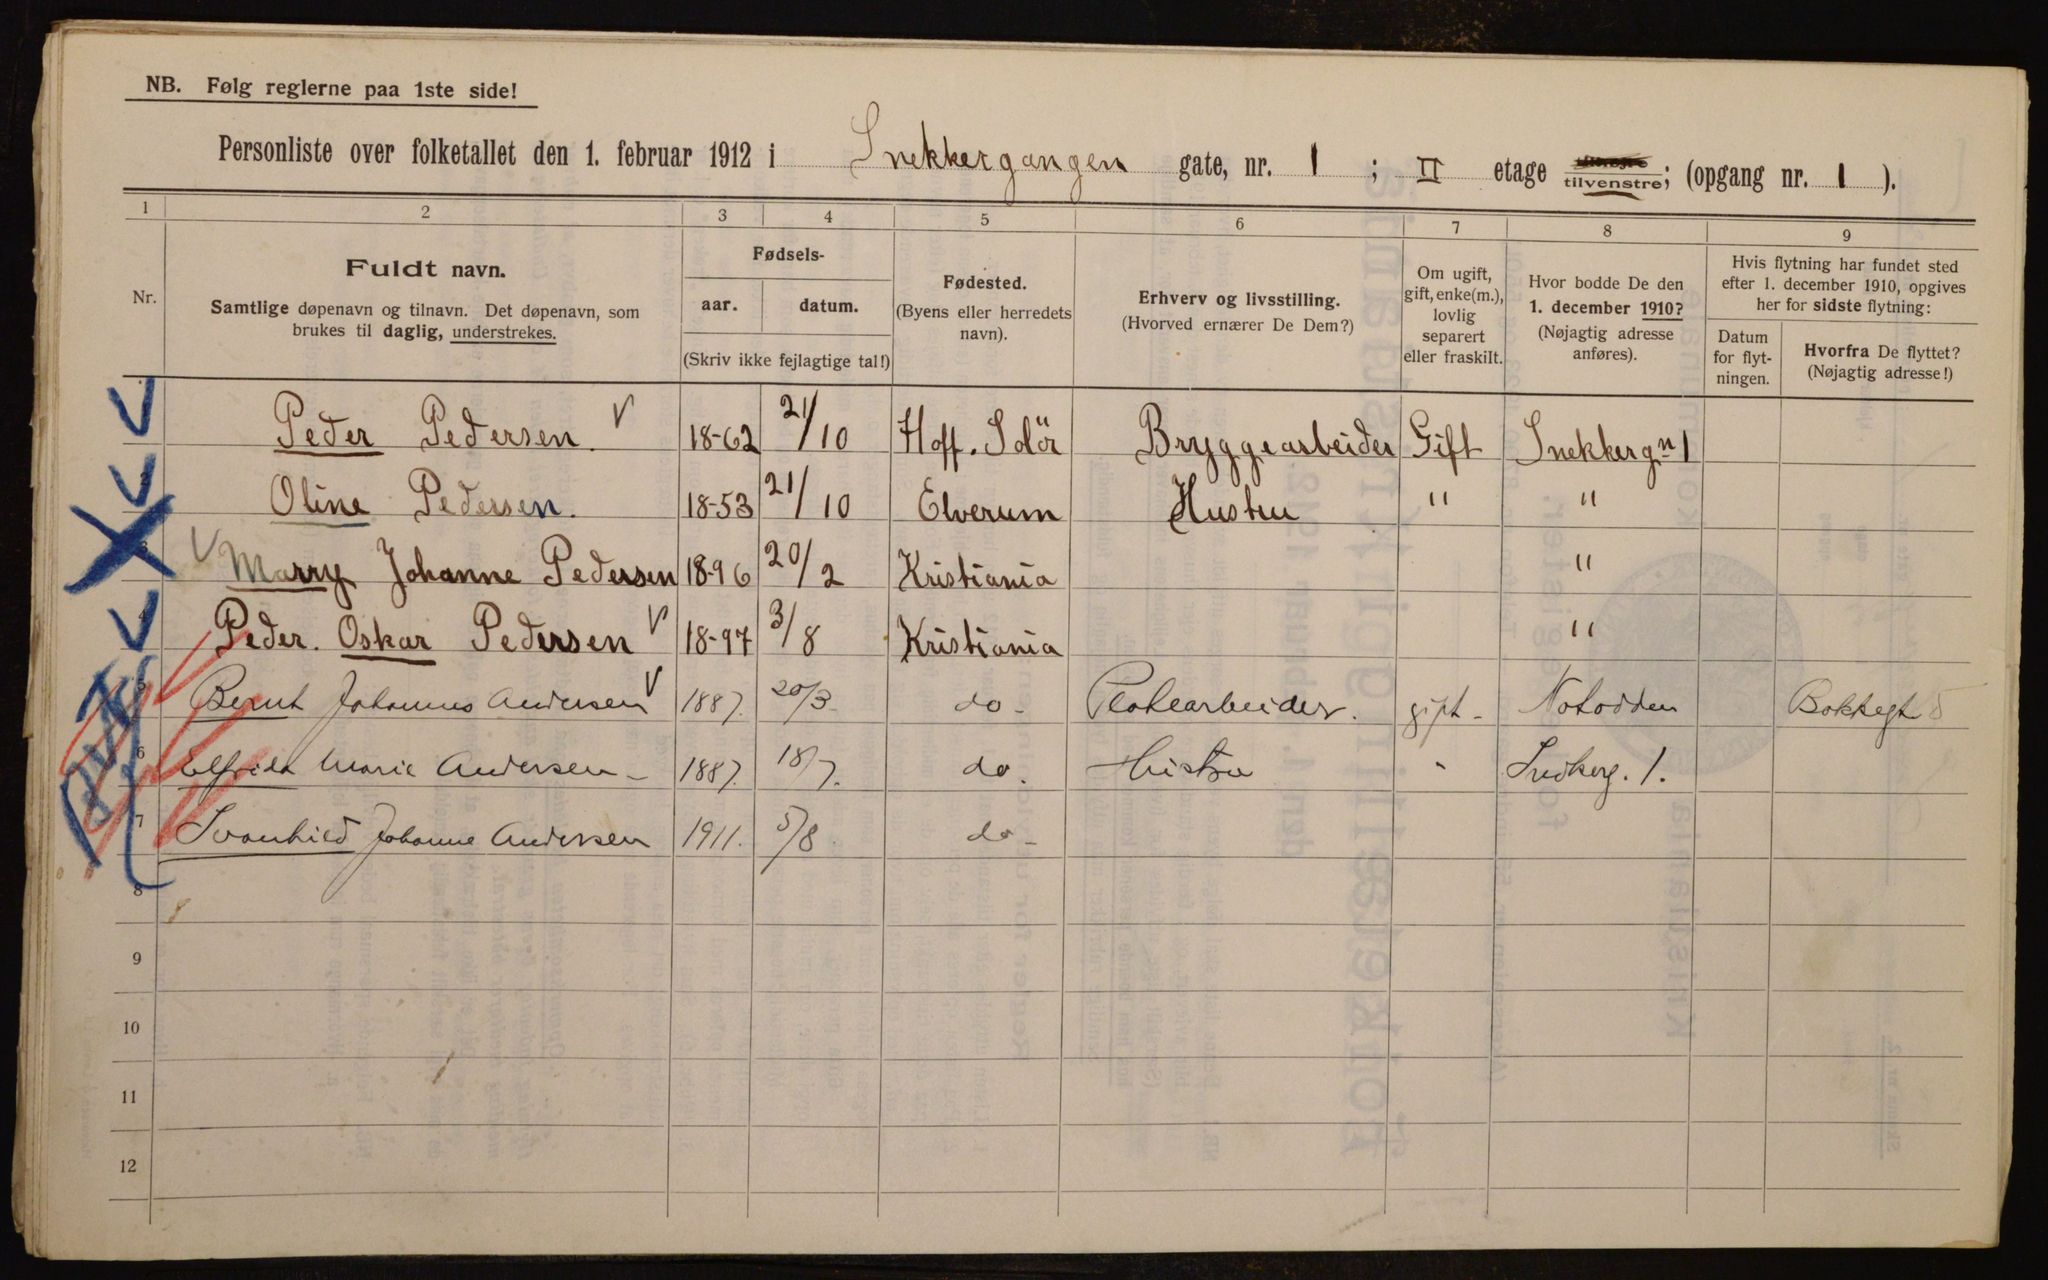 NB. Følg reglerne paa 1ste side!
Personliste over folketallet den 1. februar 1912 i Snekkergangen gate, nr. 1 ; II etage tilvenstre; (opgang nr. 1 ).
1 2 3 4 5 6 7 8 9
Nr.
Fuldt navn.
Samtlige døpenavn og tilnavn. Det døpenavn, som
brukes til daglig, understrekes.
Fødsels-
aar. datum.
(Skriv ikke fejlagtige tal!)
Fødested.
(Byens eller herredets
navn).
Erhverv og livsstilling.
(Hvorved ernærer De Dem?)
Om ugift,
gift, enke(m.),
lovlig
separert
eller fraskilt.
Hvor bodde De den
1. december 1910?
(Nøjagtig adresse
anføres).
Hvis flytning har fundet sted
efter 1. december 1910, opgives
her for sidste flytning:
Datum
for flyt-
ningen.
Hvorfra De flyttet?
(Nøjagtig adresse!)
Peder Pedersen. 18-62 21/10 Hoff. Solör Bryggearbeider Gift Snekkergn 1
Oline Pedersen. 18-53 21/10 Elverum Hustru " "
3 Marry Johanne Pedersen 18-96 20/2 Kristiania "
4 Peder. Oskar Pedersen 18-97 3/8 Kristiania "
5 Bernt Johannes Andersen 1887. 20/3 do - Platearbeider. gift - Notodden Bakkegt 5
6 Elfrida Marie Andersen - 1887. 18/7. do. Hustru " Snekerg. 1.
7 Svanhild Johanne Andersen 1911. 5/8 do -
8
9
10
11
12